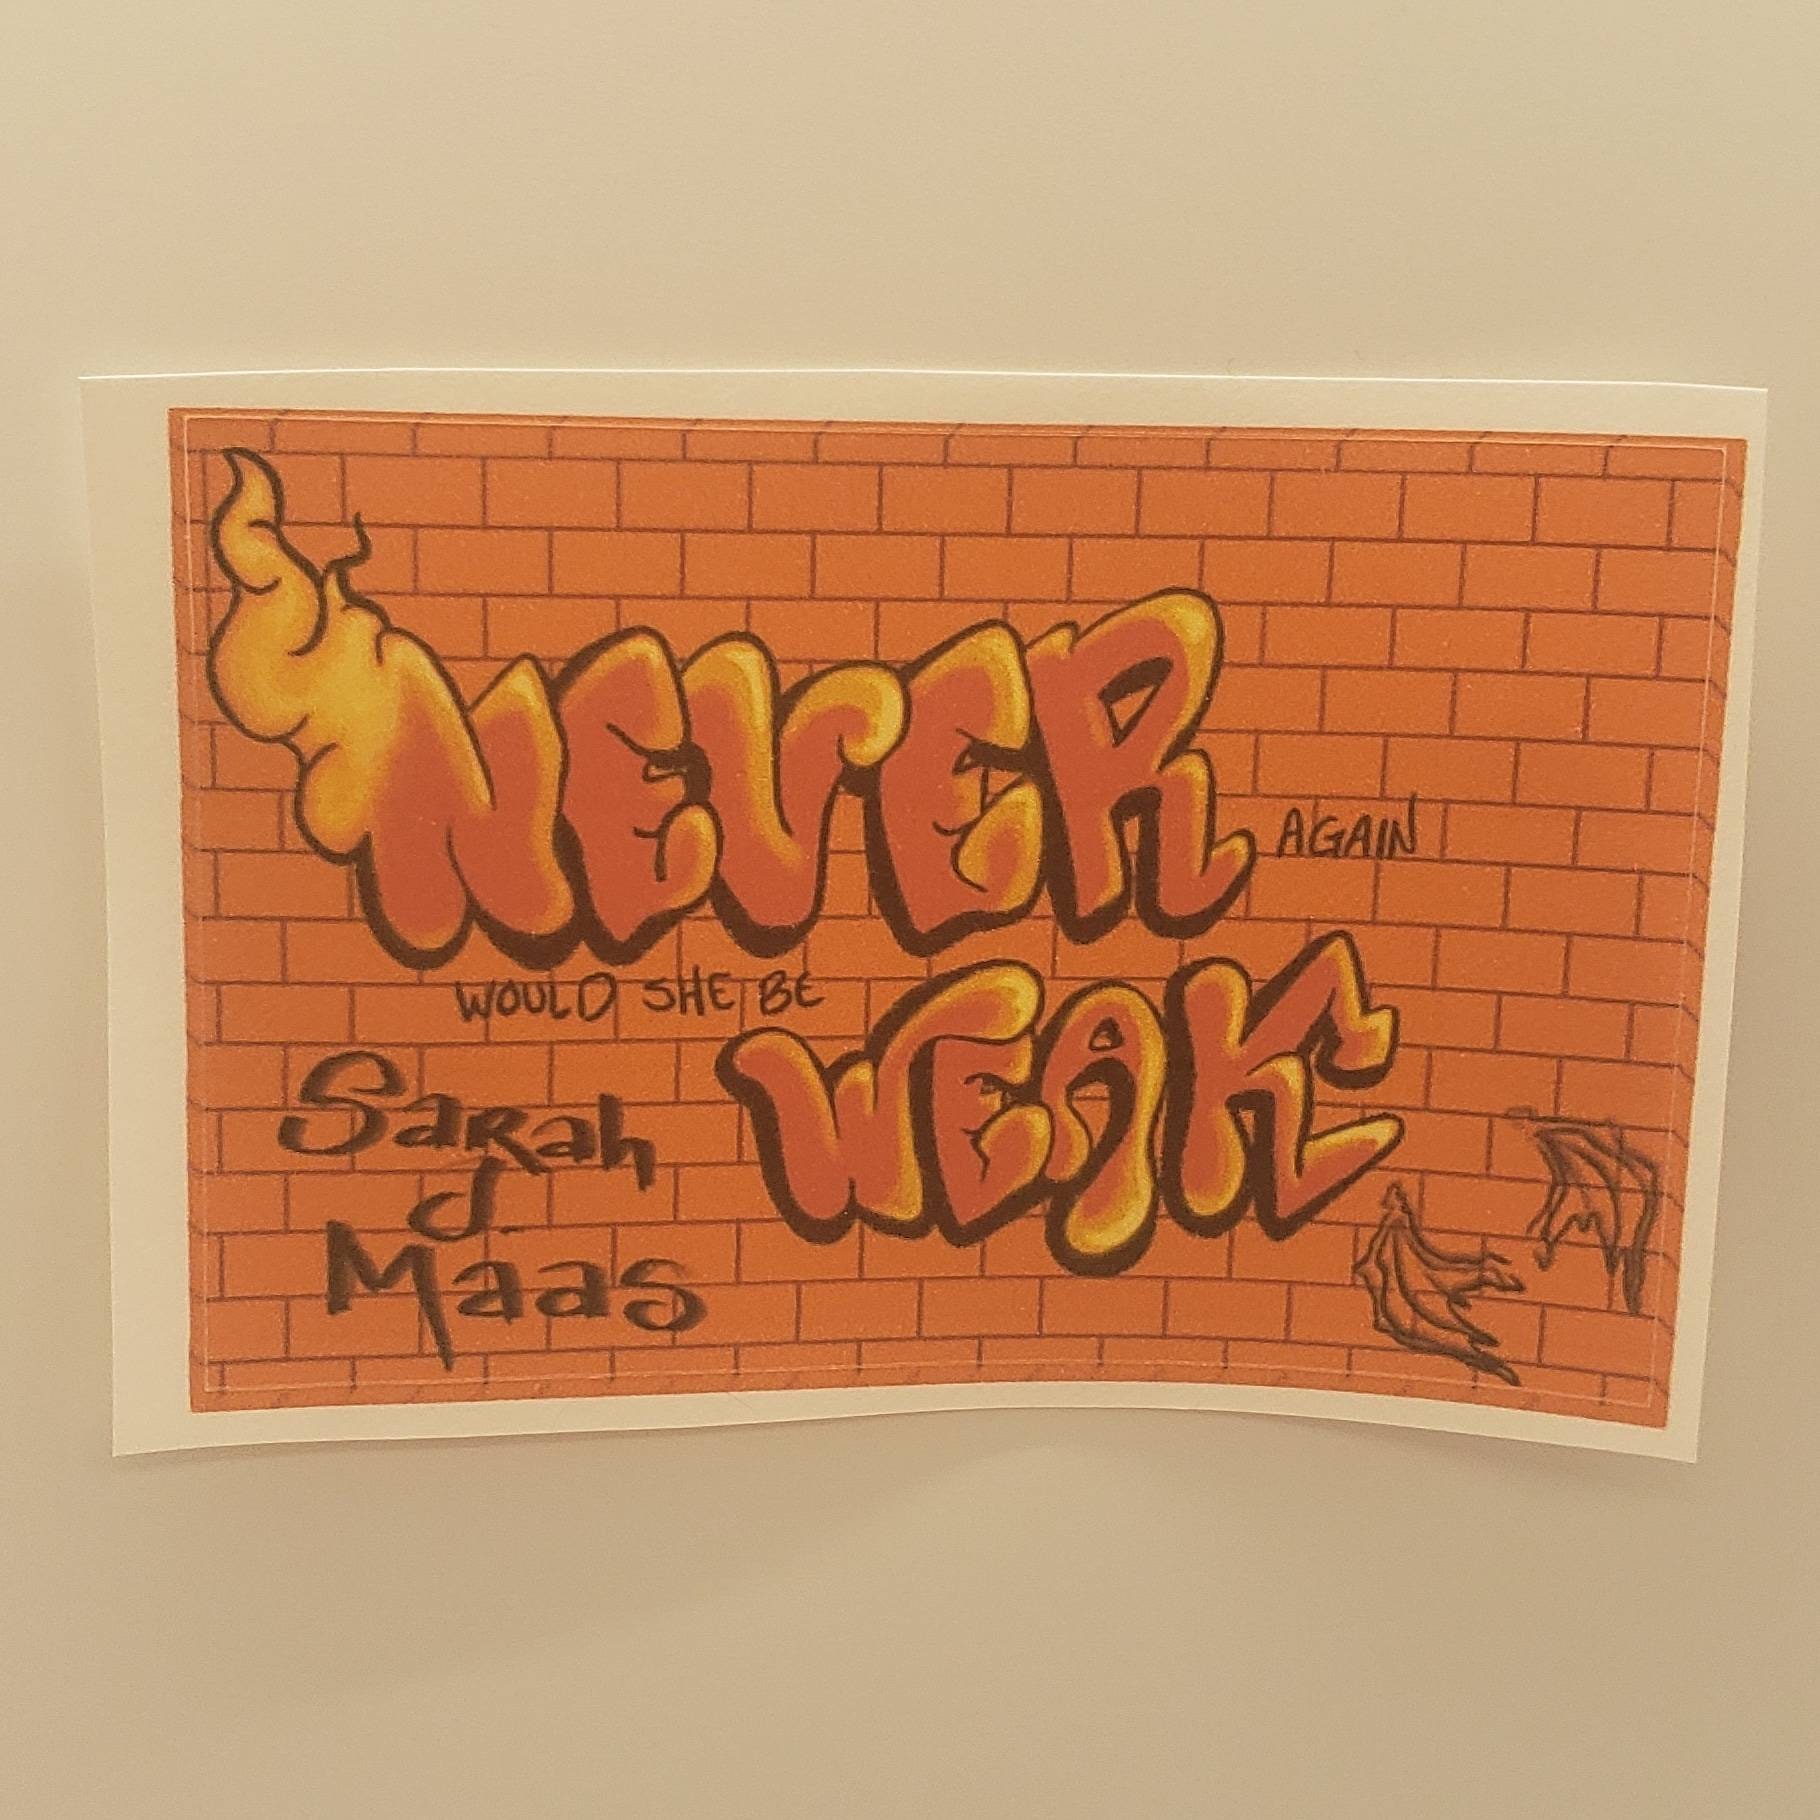 NEVER AGAIN
WOULD SHE BE
WEAK
Sarah
J.
Maas